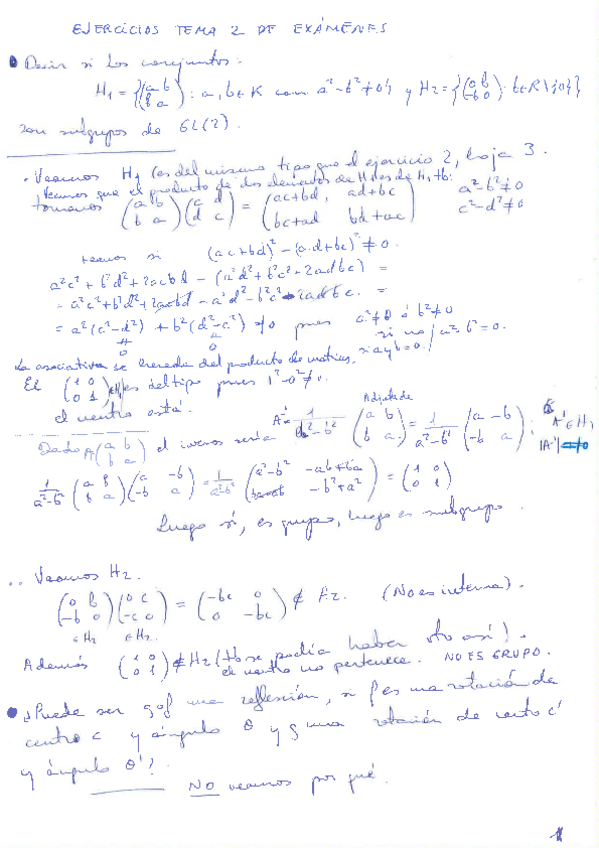 EJERCICIOS TEMA 2 DE EXÁMENES
• Decir si los conjuntos:
H₁ = {(a b; b a) : a, b ∈ K con a² - b² ≠ 0} y H₂ = {(0 b; -b 0) : b ∈ R \ {0}}
son subgrupos de GL(2).
• Veamos H₁ (es del mismo tipo que el ejercicio 2, hoja 3.
Veamos que el producto de dos elementos de H₁ es de H₁ tb:
tomamos (a b; b a)(c d; d c) = (ac+bd, ad+bc; bc+ad bd+ac) a²-b²≠0 c²-d²≠0
veamos si (ac+bd)² - (ad+bc)² ≠ 0.
a²c² + b²d² + 2acbd - (a²d² + b²c² + 2adbc) =
= a²c² + b²d² + 2acbd - a²d² - b²c² - 2adbc. =
= a²(c²-d²) + b²(d²-c²) ≠0 pues a²≠0 ó b²≠0
si no a²-b²=0.
La asociativa se hereda del producto de matrices, si a y b=0.
El (1 0; 0 1) es del tipo pues 1²-0²≠0.
el neutro está.
Dado A(a b; b a) el inverso sería A⁻¹ = 1/(a²-b²) Adjunta de (a b; b a) = 1/(a²-b²) (a -b; -b a); A⁻¹ ∈ H₁
|A⁻¹| ≠0
1/(a²-b²) (a b; b a)(a -b; -b a) = 1/(a²-b²) (a²-b² -ab+ba; ba-ab -b²+a²) = (1 0; 0 1)
Luego sí, es grupo, luego es subgrupo.
.. Veamos H₂.
(0 b; -b 0)(0 c; -c 0) = (-bc 0; 0 -bc) ∉ H₂. (No es interna).
∈H₂ ∈H₂.
Además (1 0; 0 1) ∉ H₂ (tb se podía haber visto así).
el neutro no pertenece. NO ES GRUPO.
• ¿Puede ser g∘f una reflexión, si f es una rotación de
centro c y ángulo θ y g una rotación de centro c'
y ángulo θ'?
NO veamos por qué.